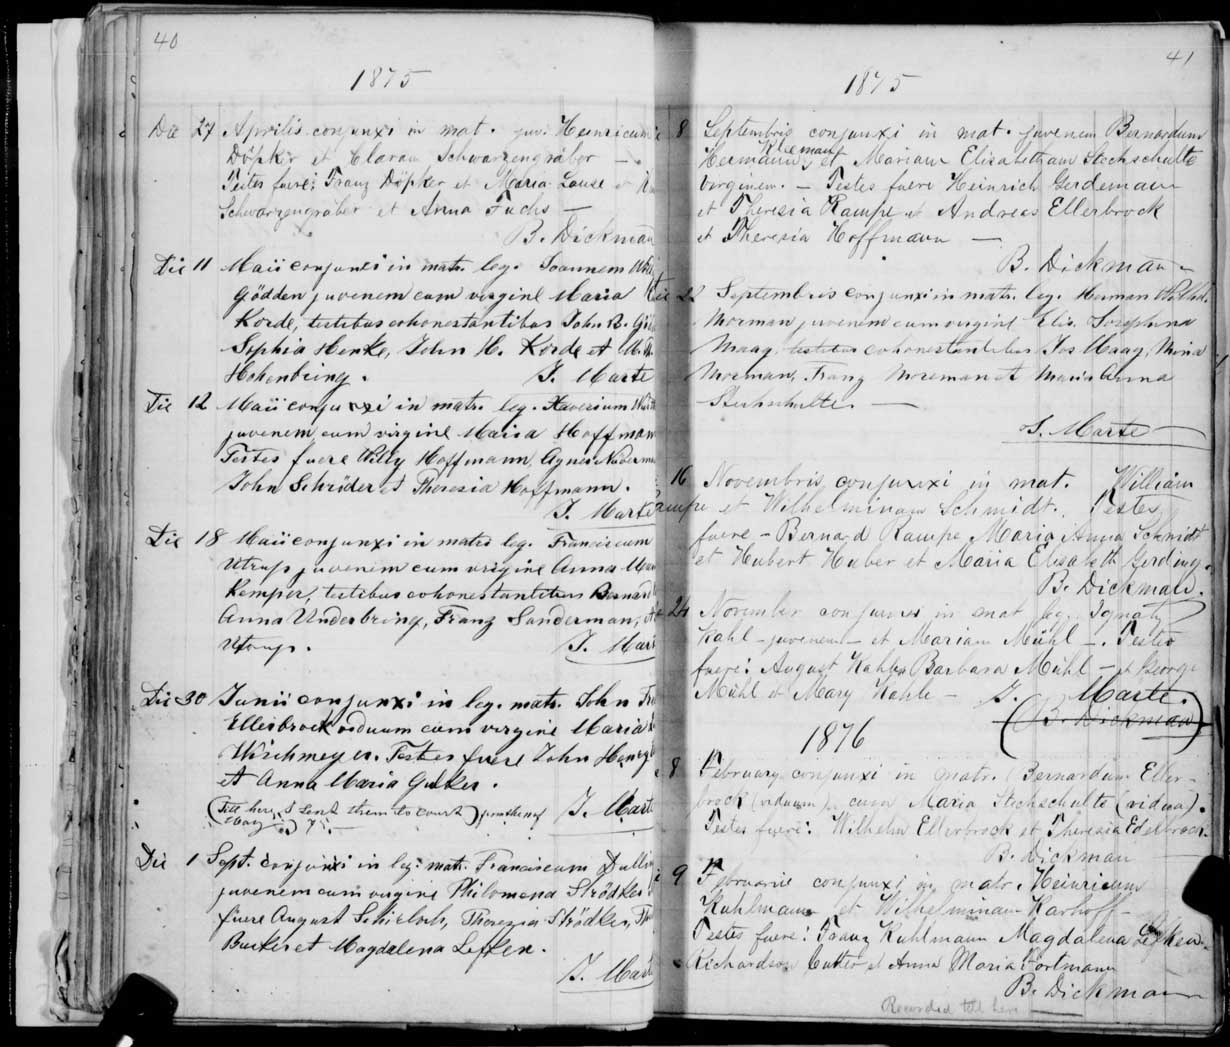 40
1875
Die 27 Aprilis conjunxi in mat. juv. Heinricum
Döpker et Claram Schwarzengräber —
Testes fuere: Franz Döpker et Maria Lause et
Schwarzengräber et Anna Fuchs —
B. Dickman
Die 11 Maii conjunxi in matr. leg. Joannem
Gödden juvenem cum virgine Maria
Korde, testibus cohonestantibus John B.
Sophia Henke, John H. Korde et
Hohenbring. J. Marte
Die 12 Maii conjunxi in matr. leg. Xaverium
juvenem cum virgine Maria Hoffman
Testes fuere Willy Hoffmann, Agnes
John Schröder et Theresia Hoffmann.
J. Marte
Die 18 Maii conjunxi in matr. leg. Franciscum
Utrup juvenem cum virgine Anna
Kemper, testibus cohonestantibus Bernard
Anna Underbring, Franz Sanderman,
Utrup. J. Mart
Die 30 Junii conjunxi in leg. matr. John
Ellerbrock viduum cum virgine Maria
Wischmeyer. Testes fuere John
et Anna Maria Gerkes.
(Till here I sent them to Court) J. Marte
Die 1 Sept. conjunxi in leg. matr. Franciscum
juvenem cum virgine Philomena Strödker
fuere August Theresia Strödker,
et Magdalena Lefken.
J. Mart
41
1875
8 Septembris conjunxi in mat. juvenem Bernardum
Klieman
Hermann et Mariam Elisabetham Stechschulte
virginem. — Testes fuere Heinrich Gerdemann
et Theresia Rampe et Andreas Ellerbrock
et Theresia Hoffmann —
B. Dickman
22 Septembris conjunxi in matr. leg. Herman
Morman juvenem cum virgine Elis. Josephina
Maag, testibus cohonestantibus Jos Maag, Maria
Morman, Franz Morman et Maria Anna
Stechschulte. —
J. Marte
16 Novembris conjunxi in mat. William
Rampe et Wilhelminam Schmidt. Testes
fuere — Bernard Rampe Maria Anna Schmidt
et Hubert Huber et Maria Elisabeth Gerding.
B. Dickman.
24 November conjunxi in mat leg. Ignatz
Kahl — juvenem — et Mariam Mühl —. Testes
fuere: August Kahle Barbara Mühl — et George
Mühl et Mary Kahle — J. Marte.
(B. Dickman)
1876
8 February conjunxi in matr. Bernardum Eller-
brock (viduum) cum Maria Stechschulte (vidua).
Testes fuere: Wilhelm Ellerbrock et Theresia Ellerbrock.
B. Dickman
9 Februarii conjunxi in matr. Heinricum
Kuhlmann et Wilhelminam Karhoff —
Testes fuere: Franz Kuhlmann Magdalena Lefken.
Richardson Cutter et Anna Maria Fortmann
B. Dickmann
Recorded till here